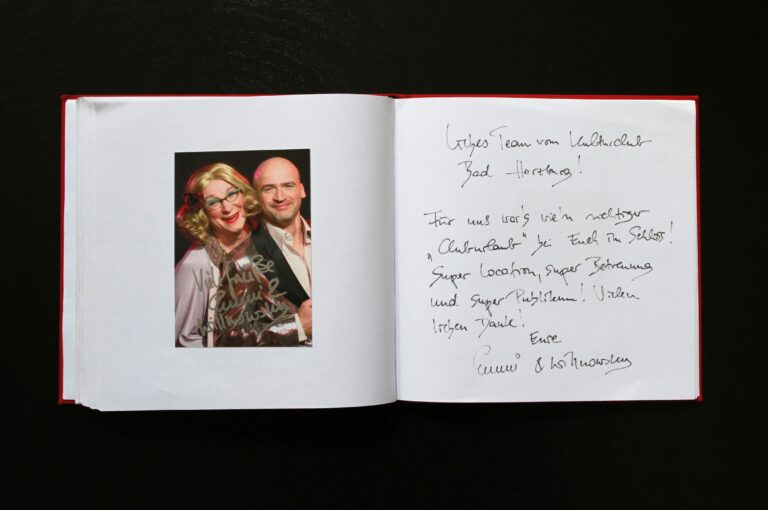 Viele Grüße
Emmi &
Willnowsky
Liebes Team vom Kulturclub
Bad Harzburg!
Für uns war's wie'n richtiger
„Cluburlaub" bei Euch im Schloss!
Super Location, super Betreuung
und super Publikum! Vielen
lieben Dank!
Eure
Emmi & Willnowsky